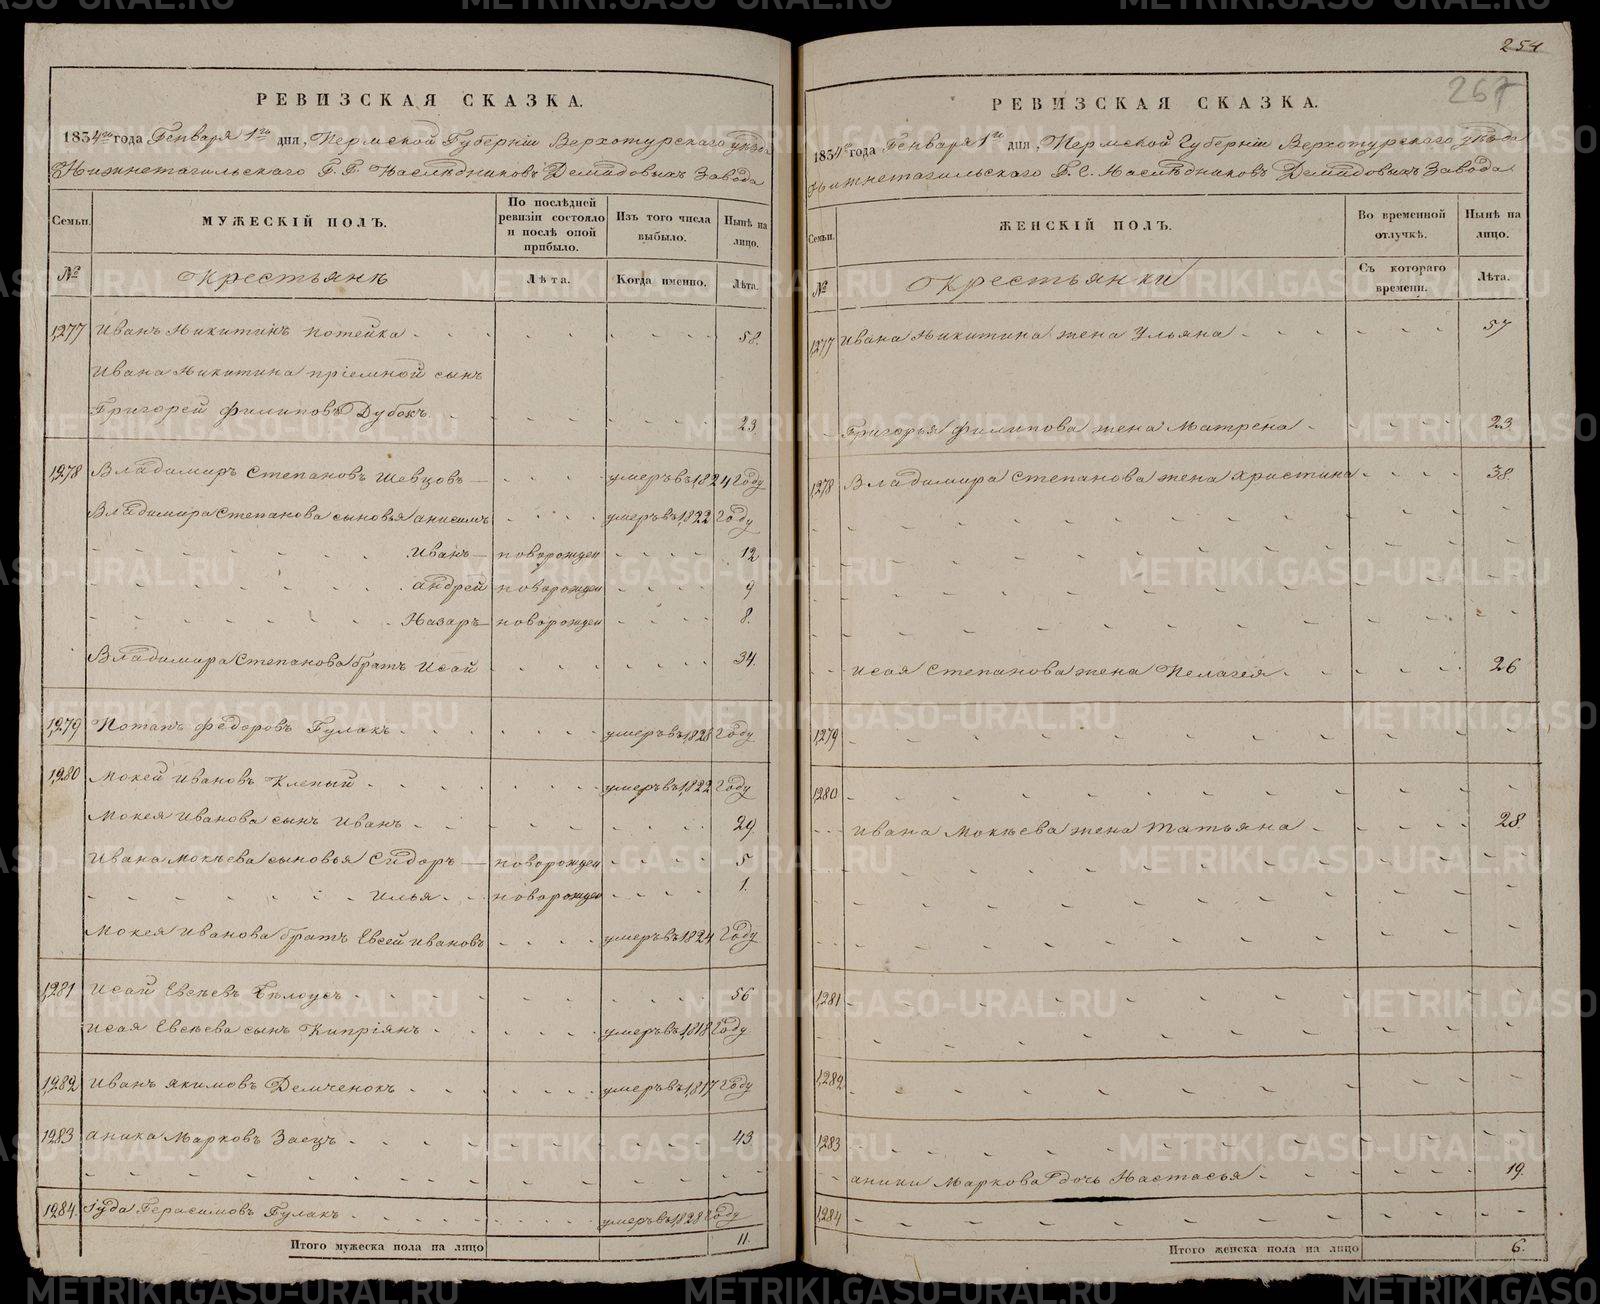 РЕВИЗСКАЯ СКАЗКА.
1834го года Генваря 1го дня, Пермской Губернiи Верхотурского уѣзда
Нижнетагильского Г. Г. Наслѣдниковъ Демидовыхъ Завода
Семьи.
МУЖЕСКIЙ ПОЛЪ.
По послѣдней ревизiи состояло и послѣ оной прибыло.
Изъ того числа выбыло.
Нынѣ на лицо.
№
Крестьянъ
Лѣта.
Когда именно.
Лѣта.
1277 Иванъ Никитинъ Потейка 58.
Ивана Никитина прiемной сынъ
Григорей Филиповъ Дубокъ 23
1278 Владимиръ Степановъ Шевцовъ умеръ въ 1824 Году
Владимира Степанова сыновья Анисимъ умеръ въ 1822 Году
Иванъ новорожден 12
Андрей новорожден 9
Назаръ новорожден 8.
Владимира Степанова братъ Исай 34.
1279 Потапъ Федоровъ Гулакъ умеръ въ 1828 Году
1280 Мокей Ивановъ Клепый умеръ въ 1822 Году
Мокея Иванова сынъ Иванъ 29
Ивана Мокѣева сыновья Сидоръ новорожден 5
Илья новорожден 1.
Мокея Иванова братъ Евсей Ивановъ умеръ въ 1824 Году
1281 Исай Евсѣевъ Бѣлоусъ 56
Исая Евсѣева сынъ Кипрiянъ умеръ въ 1818 Году
1282 Иванъ Якимовъ Демченокъ умеръ въ 1817 Году
1283 Аника Марковъ Заецъ 43
1284. Iуда Герасимовъ Гулакъ умеръ въ 1828 Году
Итого мужеска пола на лицо 11.
254
267
РЕВИЗСКАЯ СКАЗКА.
1834го года Генваря 1го дня, Пермской Губернiи Верхотурского уѣзда
Нижнетагильского Г. Г. Наслѣдниковъ Демидовыхъ Завода
Семьи.
ЖЕНСКIЙ ПОЛЪ.
Во временной отлучкѣ.
Нынѣ на лицо.
№
Крестьянки
Съ котораго времени.
Лѣта.
1277 Ивана Никитина жена Ульяна 57
Григорья Филипова жена Матрена 23.
1278 Владимира Степанова жена Христина 38.
Исая Степанова жена Пелагея 26
1279
1280
Ивана Мокѣева жена Татьяна 28.
1281
1282
1283
Аники Маркова дочь Настасья 19.
1284
Итого женска пола на лицо 6.
METRIKI.GASO-URAL.RU